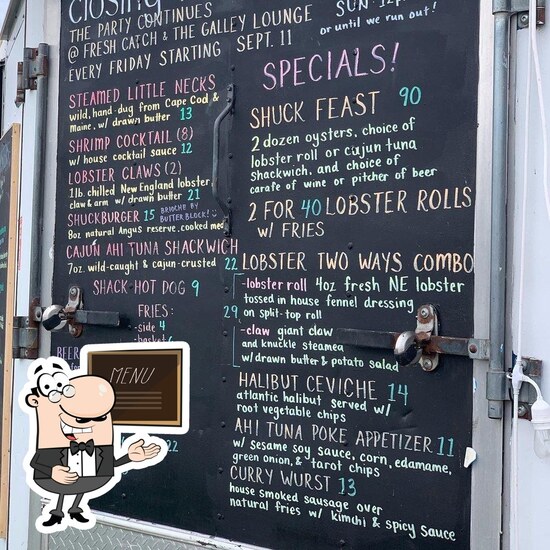 THE PARTY CONTINUES
@ FRESH CATCH & THE GALLEY LOUNGE
EVERY FRIDAY STARTING SEPT. 11
STEAMED LITTLE NECKS
wild, hand-dug from Cape Cod &
Maine, w/ drawn butter 13
SHRIMP COCKTAIL (8)
w/ house cocktail sauce 12
LOBSTER CLAWS (2)
1 lb. chilled New England lobster
claw & arm w/ drawn butter 21
SHUCKBURGER 15 BRIOCHE BY BUTTER BLOCK!
8oz natural Angus reserve, cooked med
CAJUN AHI TUNA SHACKWICH
7oz. wild-caught & cajun-crusted 22
SHACK-HOT DOG 9
FRIES:
-side 4
BEER
22
MENU
SUN
or until we run out!
SPECIALS!
SHUCK FEAST 90
2 dozen oysters, choice of
lobster roll or cajun tuna
Shackwich, and choice of
carafe of wine or pitcher of beer
2 FOR 40 LOBSTER ROLLS
w/ FRIES
LOBSTER TWO WAYS COMBO
29
-lobster roll 4oz fresh NE lobster
tossed in house fennel dressing
on split-top roll
-claw giant claw
and knuckle steamed
w/ drawn butter & potato salad
HALIBUT CEVICHE 14
atlantic halibut served w/
root vegetable chips
AHI TUNA POKE APPETIZER 11
w/ sesame soy sauce, corn, edamame,
green onion, & tarot chips
CURRY WURST 13
house smoked sausage over
natural fries w/ kimchi & spicy sauce